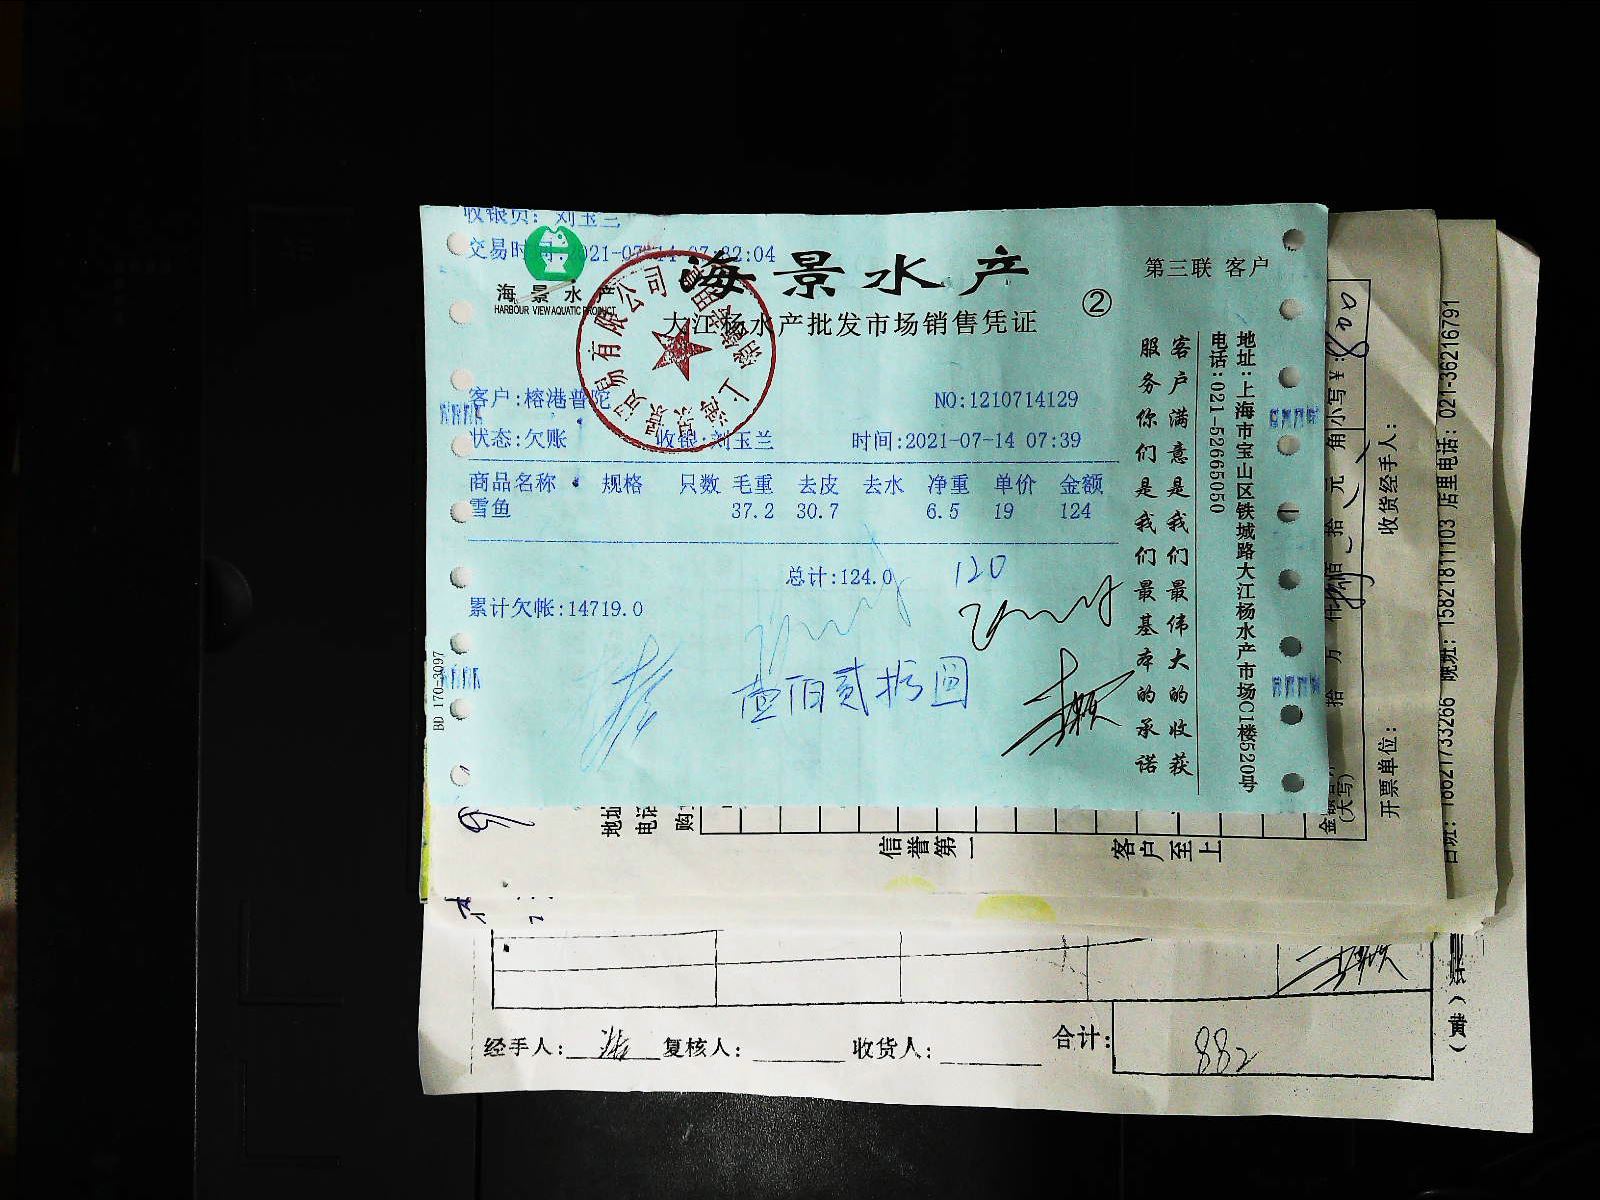 收银员: 刘玉兰
交易时间: 2021-07-14 07:32:04
海景水产
HARBOUR VIEW AQUATIC PRODUCT
海景水产
第三联 客户
②
大江杨水产批发市场销售凭证
客户:榕港普陀
NO:1210714129
状态:欠账 收银:刘玉兰 时间:2021-07-14 07:39
商品名称 规格 只数 毛重 去皮 去水 净重 单价 金额
雪鱼 37.2 30.7 6.5 19 124
总计:124.0
120
累计欠帐:14719.0
壹佰贰拾圆
BD 170-3097
客户满意是我们最伟大的收获
服务你们是我们最基本的承诺
地址:上海市宝山区铁城路大江杨水产市场C1楼520号
电话:021-52665050
贸易有限公司
小写¥:
800
收货经手人:
开票单位:
(大写)
晚班: 15821811103 店里电话: 021-36216791
地址
电话
购
信誉第一
客户至上
经手人: 复核人: 收货人:
合计:
882
(黄)